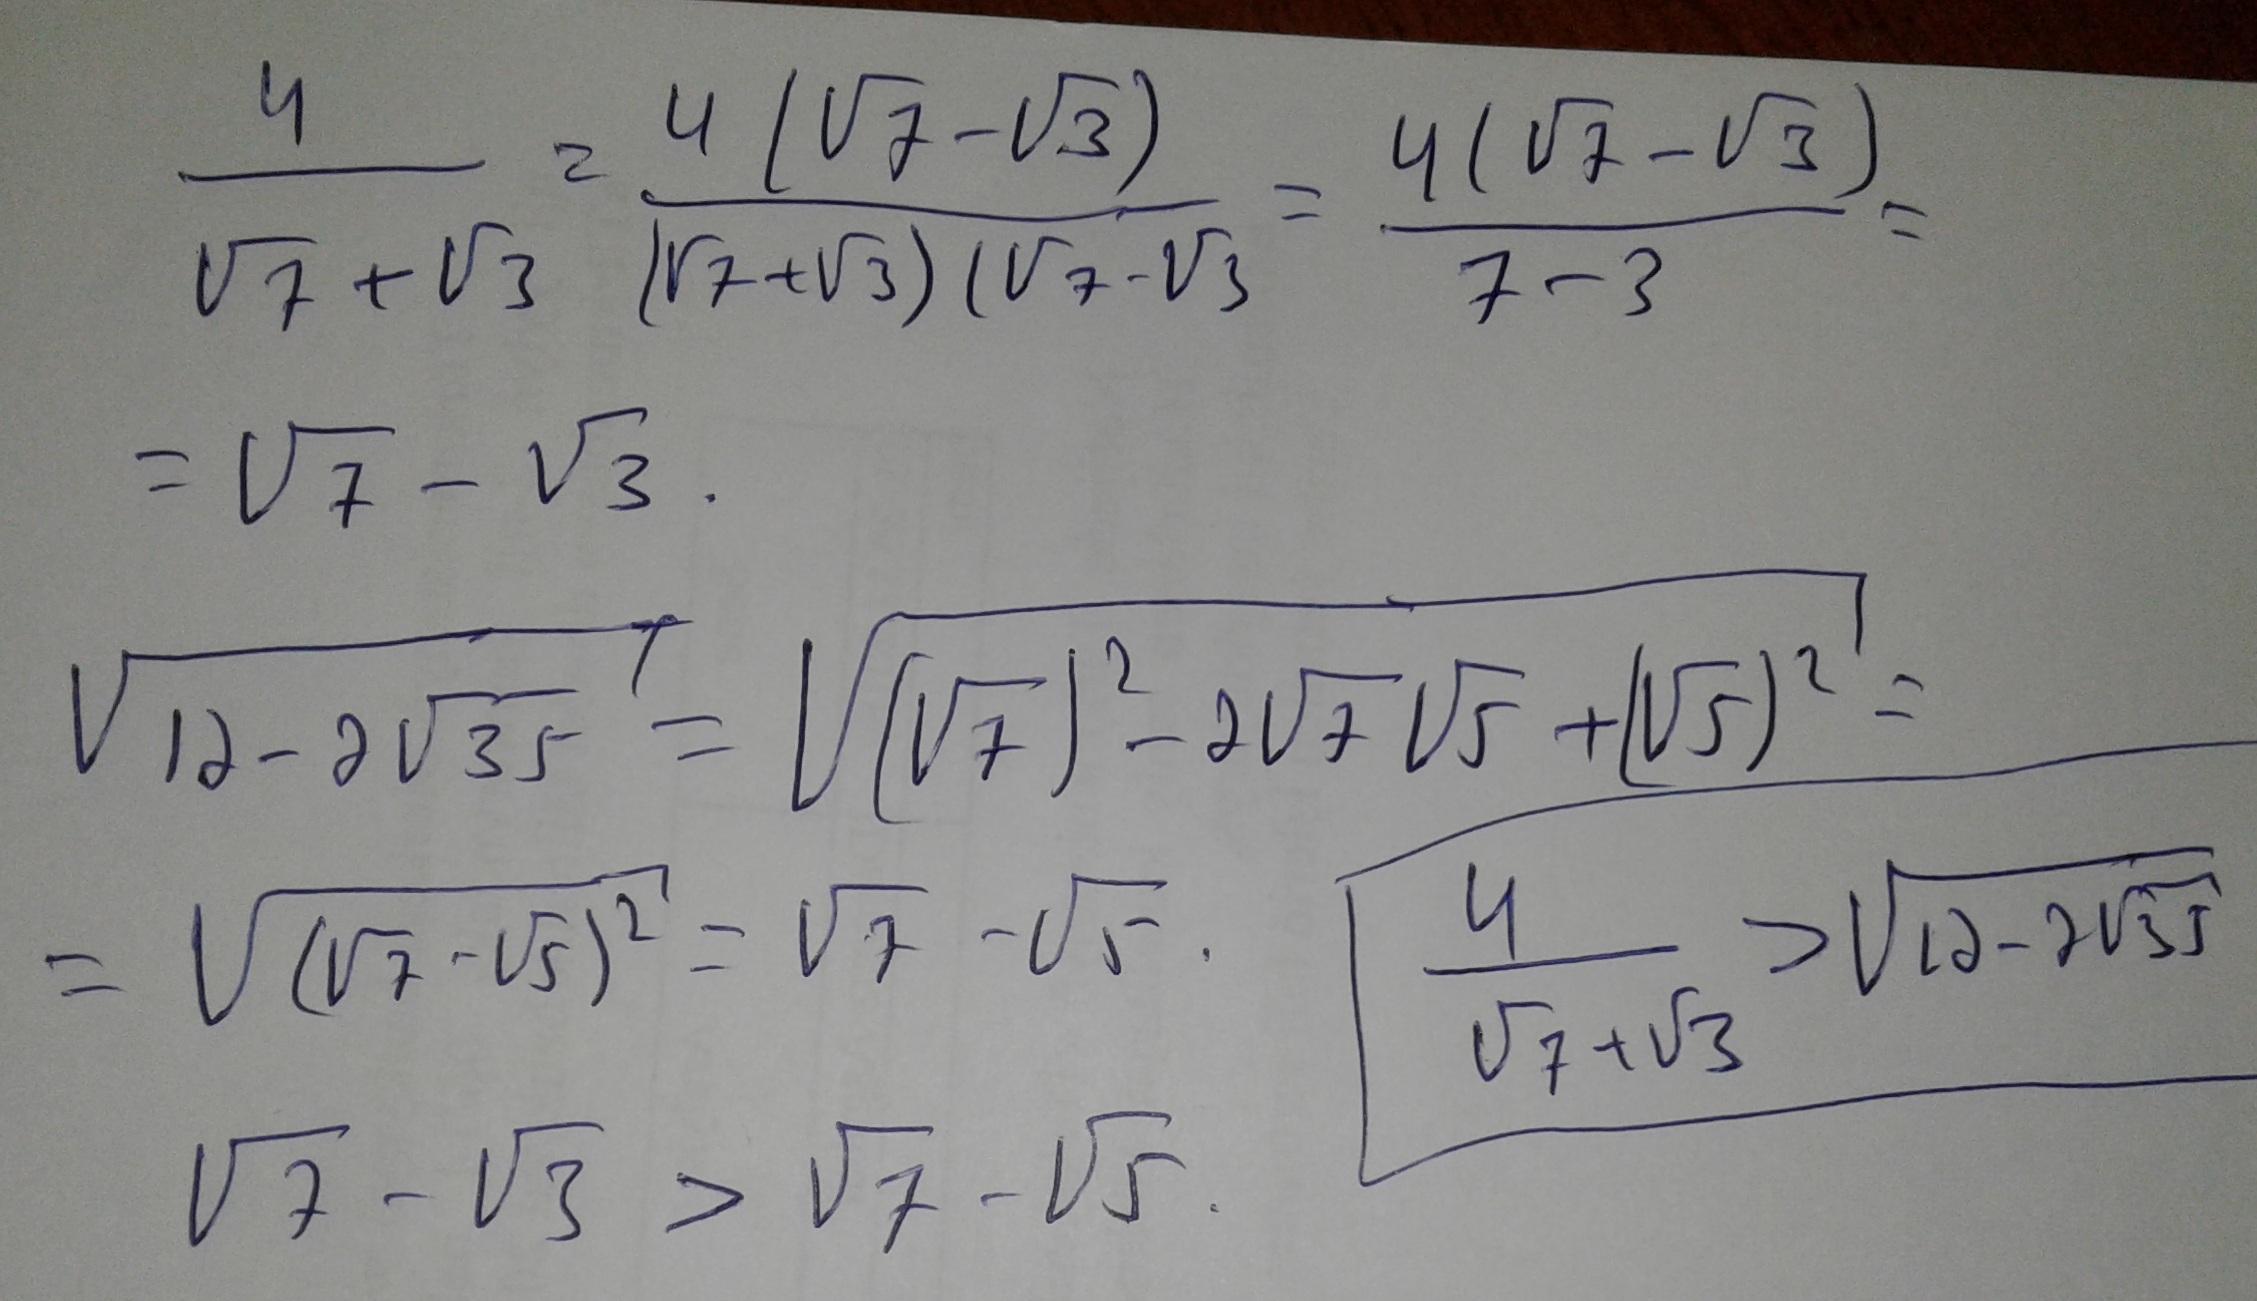 4/(√7+√3) = 4(√7-√3)/((√7+√3)(√7-√3) = 4(√7-√3)/(7-3) =
= √7 - √3.
√(12-2√35) = √((√7)² - 2√7√5 + (√5)²) =
= √((√7-√5)²) = √7 - √5.
4/(√7+√3) > √(12-2√35)
√7 - √3 > √7 - √5.